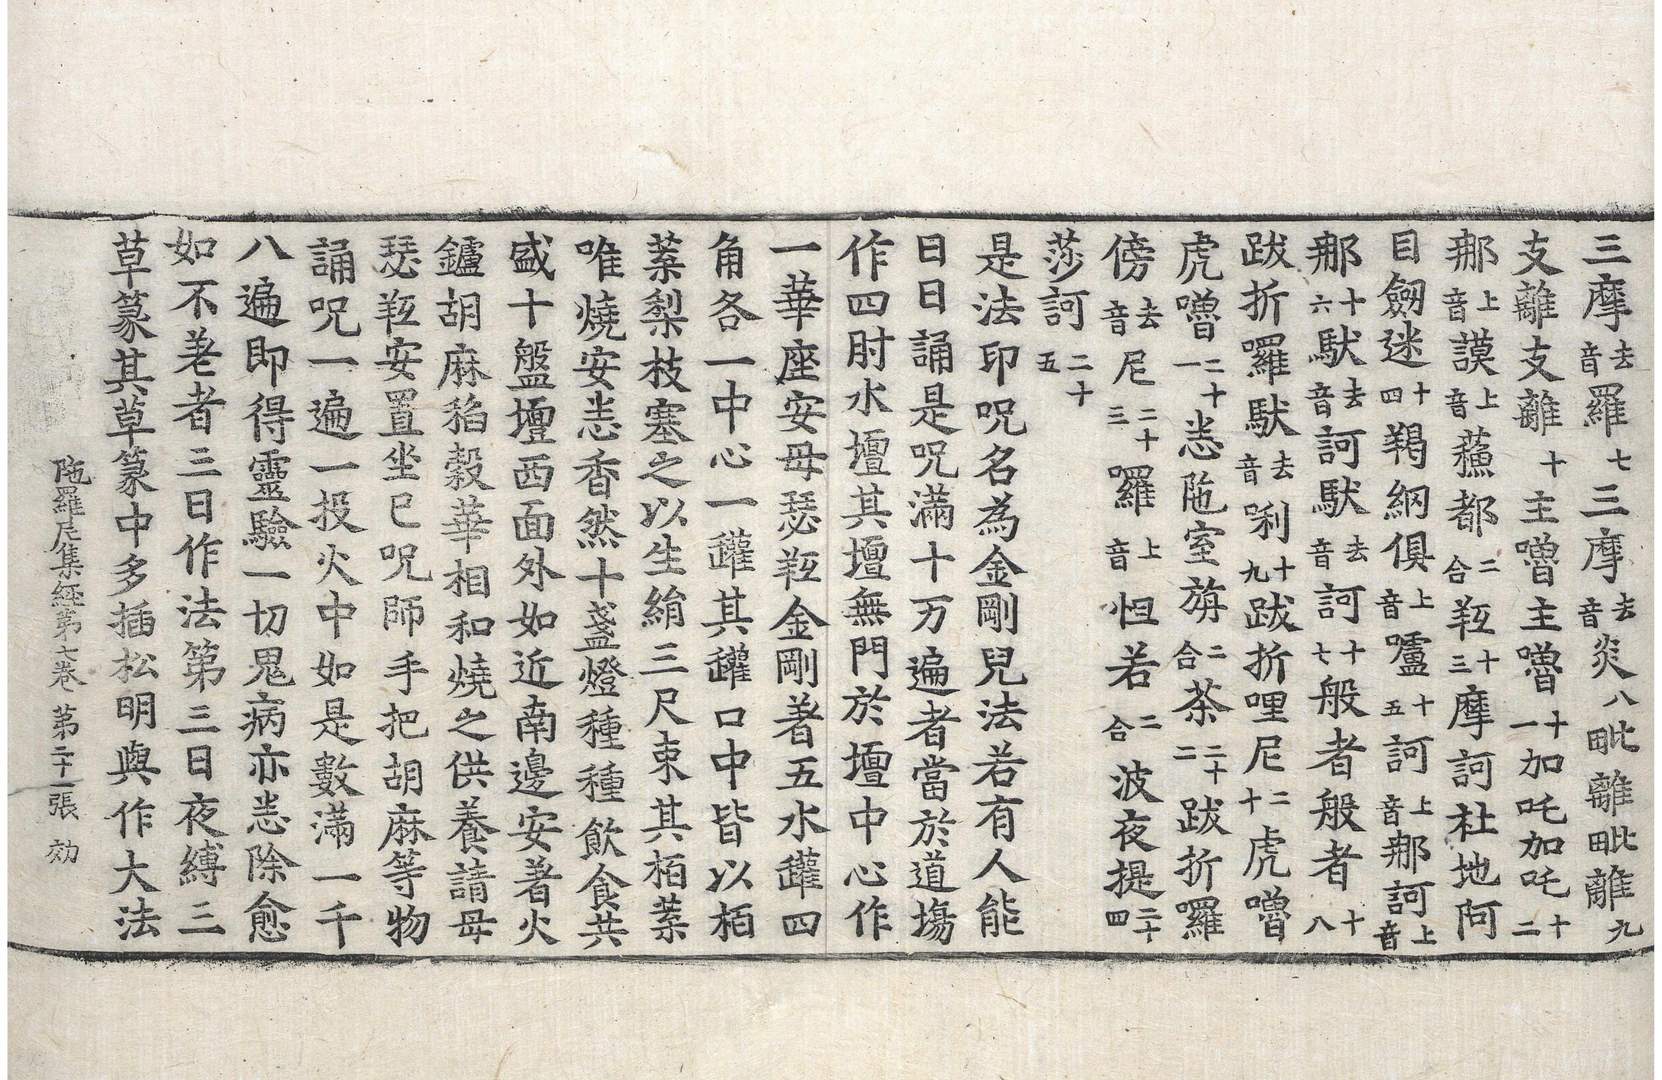 三摩去音羅七三摩去音炎八毗離毗離九
支離支離十主嚕主嚕十一加吒加吒十二
那上音謨上音蘓都二合䍧十三摩訶杜地阿
目劔迷十四羯納俱上音嚧十五訶上音那訶上音
那十六馱去音訶馱去音訶十七般者般者十八
跋折囉馱去音唎十九跋折哩尼二十虎嚕
虎嚕二十一恙陁室旃二合茶二十二跋折囉
傍去音尼二十三囉上音怛若二合波夜提二十四
莎訶二十五
是法印呪名為金剛兒法若有人能
日日誦是呪滿十万遍者當於道塲
作四肘水壇其壇無門於壇中心作
一華座安母瑟䍧金剛著五水鑵四
角各一中心一鑵其鑵口中皆以栢
葉梨枝塞之以生絹三尺束其栢葉
唯燒安悉香然十盞燈種種飲食共
盛十盤壇西面外如近南邊安著火
鑪胡麻稻穀華相和燒之供養請母
瑟䍧安置坐已呪師手把胡麻等物
誦呪一遍一投火中如是數滿一千
八遍即得靈驗一切鬼病亦悉除愈
如不差者三日作法第三日夜縛三
草篆其草篆中多插松明與作大法
陁羅尼集經第七卷 第二十一張 効